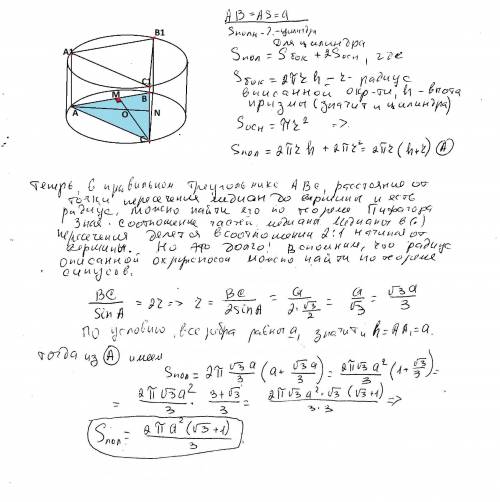 A1
B1
C1
M
B
A
O
N
C
AB=AS=a
Sполн-?-цилиндра
Для цилиндра
Sпол = Sбок + 2Sосн, где
Sбок = 2πrh - r- радиус
вписанной окр-ти, h-высота
призмы (значит и цилиндра)
Sосн = πr² =>
Sпол = 2πrh + 2πr² = 2πr(h+r) (A)
Теперь, в правильном треугольнике ABC, расстояние от
точки пересечения медиан до вершины и есть
радиус, можно найти его по теореме Пифагора
Зная соотношение частей медианы (медианы в(·)
пересечения делятся в соотношении 2:1 начиная от
вершины. Но это долго! Вспомним, что радиус
описанной окружности можно найти по теореме
синусов:
BC/SinA = 2r => r = BC/2sinA = a/(2·√3/2) = a/√3 = √3a/3
По условию, все ребра равны a, значит и h=AA₁=a.
тогда из (A) имеем
Sпол = 2π √3a/3 (a + √3a/3) = 2π√3a²/3 (1+√3/3) =
= 2π√3a²/3 · 3+√3/3 = 2π√3a²·√3(√3+1)/3·3 =>
Sпол = 2πa²(√3+1)/3